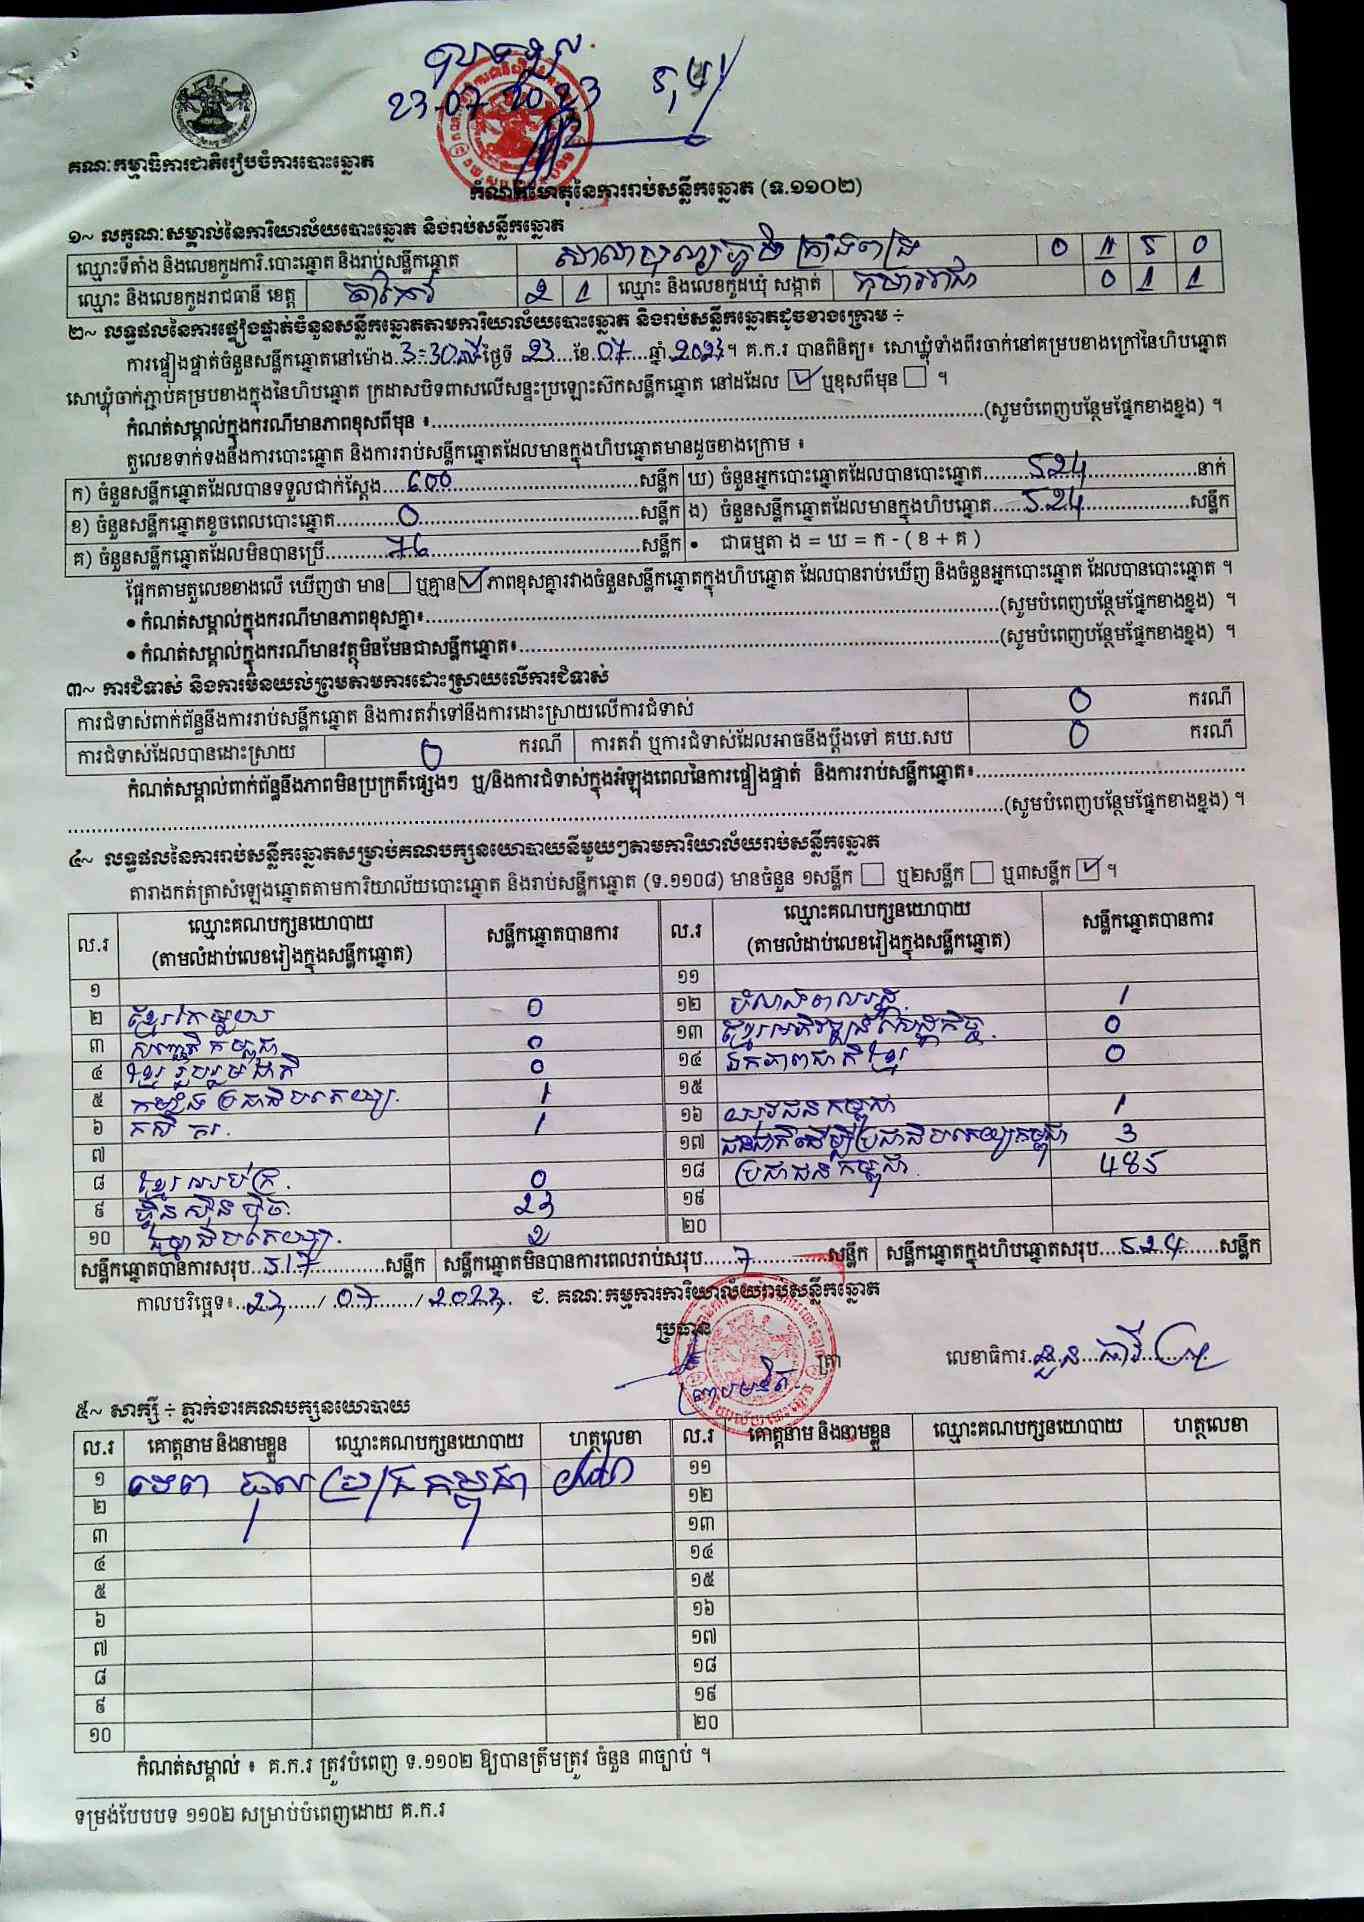 23-07-2023
គណៈកម្មាធិការជាតិរៀបចំការបោះឆ្នោត
កំណត់ហេតុនៃការរាប់សន្លឹកឆ្នោត (ទ.១១០២)
១~ លក្ខណៈសម្គាល់នៃការិយាល័យបោះឆ្នោត និងរាប់សន្លឹកឆ្នោត
ឈ្មោះទីតាំង និងលេខកូដការិ.បោះឆ្នោត និងរាប់សន្លឹកឆ្នោត 0 1 5 0
ឈ្មោះ និងលេខកូដរាជធានី ខេត្ត តាកែវ 2 1 ឈ្មោះ និងលេខកូដឃុំ សង្កាត់ កុមាររាជា 0 1 1
២~ លទ្ធផលនៃការផ្ទៀងផ្ទាត់ចំនួនសន្លឹកឆ្នោតតាមការិយាល័យបោះឆ្នោត និងរាប់សន្លឹកឆ្នោតដូចខាងក្រោម ÷
ការផ្ទៀងផ្ទាត់ចំនួនសន្លឹកឆ្នោតនៅម៉ោង 3-30 ថ្ងៃទី 23 ខែ 07 ឆ្នាំ 2023 ។ គ.ក.រ បានពិនិត្យ៖ សោឃ្លុំទាំងពីរចាក់នៅគម្របខាងក្រៅនៃហិបឆ្នោត
សោឃ្លុំចាក់ភ្ជាប់គម្របខាងក្នុងនៃហិបឆ្នោត ក្រដាសបិទពាសលើសន្ទះប្រឡោះស៊កសន្លឹកឆ្នោត នៅដដែល ☑ ឬខុសពីមុន ☐ ។
កំណត់សម្គាល់ក្នុងករណីមានភាពខុសពីមុន ៖........(សូមបំពេញបន្ថែមផ្នែកខាងខ្នង) ។
តួលេខទាក់ទងនឹងការបោះឆ្នោត និងការរាប់សន្លឹកឆ្នោតដែលមានក្នុងហិបឆ្នោតមានដូចខាងក្រោម ៖
ក) ចំនួនសន្លឹកឆ្នោតដែលបានទទួលជាក់ស្តែង 600 សន្លឹក ឃ) ចំនួនអ្នកបោះឆ្នោតដែលបានបោះឆ្នោត 524 នាក់
ខ) ចំនួនសន្លឹកឆ្នោតខូចពេលបោះឆ្នោត 0 សន្លឹក ង) ចំនួនសន្លឹកឆ្នោតដែលមានក្នុងហិបឆ្នោត 524 សន្លឹក
គ) ចំនួនសន្លឹកឆ្នោតដែលមិនបានប្រើ 76 សន្លឹក • ជាធម្មតា ង = ឃ = ក - ( ខ + គ )
ផ្អែកតាមតួលេខខាងលើ ឃើញថា មាន ☐ ឬគ្មាន ☑ ភាពខុសគ្នារវាងចំនួនសន្លឹកឆ្នោតក្នុងហិបឆ្នោត ដែលបានរាប់ឃើញ និងចំនួនអ្នកបោះឆ្នោត ដែលបានបោះឆ្នោត ។
• កំណត់សម្គាល់ក្នុងករណីមានភាពខុសគ្នា៖........(សូមបំពេញបន្ថែមផ្នែកខាងខ្នង) ។
• កំណត់សម្គាល់ក្នុងករណីមានវត្ថុមិនមែនជាសន្លឹកឆ្នោត៖........(សូមបំពេញបន្ថែមផ្នែកខាងខ្នង) ។
៣~ ការជំទាស់ និងការមិនយល់ព្រមតាមការដោះស្រាយលើការជំទាស់
ការជំទាស់ពាក់ព័ន្ធនឹងការរាប់សន្លឹកឆ្នោត និងការតវ៉ាទៅនឹងការដោះស្រាយលើការជំទាស់ 0 ករណី
ការជំទាស់ដែលបានដោះស្រាយ 0 ករណី ការតវ៉ា ឬការជំទាស់ដែលអាចនឹងប្តឹងទៅ គឃ.សប 0 ករណី
កំណត់សម្គាល់ពាក់ព័ន្ធនឹងភាពមិនប្រក្រតីផ្សេងៗ ឬ/និងការជំទាស់ក្នុងអំឡុងពេលនៃការផ្ទៀងផ្ទាត់ និងការរាប់សន្លឹកឆ្នោត៖........
........(សូមបំពេញបន្ថែមផ្នែកខាងខ្នង) ។
៤~ លទ្ធផលនៃការរាប់សន្លឹកឆ្នោតសម្រាប់គណបក្សនយោបាយនីមួយៗតាមការិយាល័យរាប់សន្លឹកឆ្នោត
តារាងកត់ត្រាសំឡេងឆ្នោតតាមការិយាល័យបោះឆ្នោត និងរាប់សន្លឹកឆ្នោត (ទ.១១០៨) មានចំនួន ១សន្លឹក ☐ ឬ២សន្លឹក ☐ ឬ៣សន្លឹក ☑ ។
ល.រ ឈ្មោះគណបក្សនយោបាយ (តាមលំដាប់លេខរៀងក្នុងសន្លឹកឆ្នោត) សន្លឹកឆ្នោតបានការ ល.រ ឈ្មោះគណបក្សនយោបាយ (តាមលំដាប់លេខរៀងក្នុងសន្លឹកឆ្នោត) សន្លឹកឆ្នោតបានការ
១ ១១
២ ខ្មែរតែមួយ 0 ១២ បំលាស់ពលរដ្ឋ 1
៣ សញ្ជាតិកម្ពុជា 0 ១៣ ខ្មែរអភិវឌ្ឍន៍សេដ្ឋកិច្ច 0
៤ ខ្មែររួបរួមជាតិ 0 ១៤ ឯកភាពជាតិខ្មែរ 0
៥ កម្លាំងប្រជាធិបតេយ្យ 1 ១៥
៦ កសិករ 1 ១៦ យុវជនកម្ពុជា 1
៧ ១៧ ជនជាតិដើម្បីប្រជាធិបតេយ្យកម្ពុជា 3
៨ ខ្មែរឈប់ក្រ 0 ១៨ ប្រជាជនកម្ពុជា 485
៩ ហ៊្វុនស៊ិនប៉ិច 23 ១៩
១០ ធម្មាធិបតេយ្យ 2 ២០
សន្លឹកឆ្នោតបានការសរុប 517 សន្លឹក សន្លឹកឆ្នោតមិនបានការពេលរាប់សរុប 7 សន្លឹក សន្លឹកឆ្នោតក្នុងហិបឆ្នោតសរុប 524 សន្លឹក
កាលបរិច្ឆេទ៖ 23 / 07 / 2023 ជ. គណៈកម្មការការិយាល័យរាប់សន្លឹកឆ្នោត
ប្រធាន
ត្រា លេខាធិការ
៥~ សាក្សី ÷ ភ្នាក់ងារគណបក្សនយោបាយ
ល.រ គោត្តនាម និងនាមខ្លួន ឈ្មោះគណបក្សនយោបាយ ហត្ថលេខា ល.រ គោត្តនាម និងនាមខ្លួន ឈ្មោះគណបក្សនយោបាយ ហត្ថលេខា
១ ១១
២ ១២
៣ ១៣
៤ ១៤
៥ ១៥
៦ ១៦
៧ ១៧
៨ ១៨
៩ ១៩
១០ ២០
កំណត់សម្គាល់ ៖ គ.ក.រ ត្រូវបំពេញ ទ.១១០២ ឱ្យបានត្រឹមត្រូវ ចំនួន ៣ច្បាប់ ។
ទម្រង់បែបបទ ១១០២ សម្រាប់បំពេញដោយ គ.ក.រ